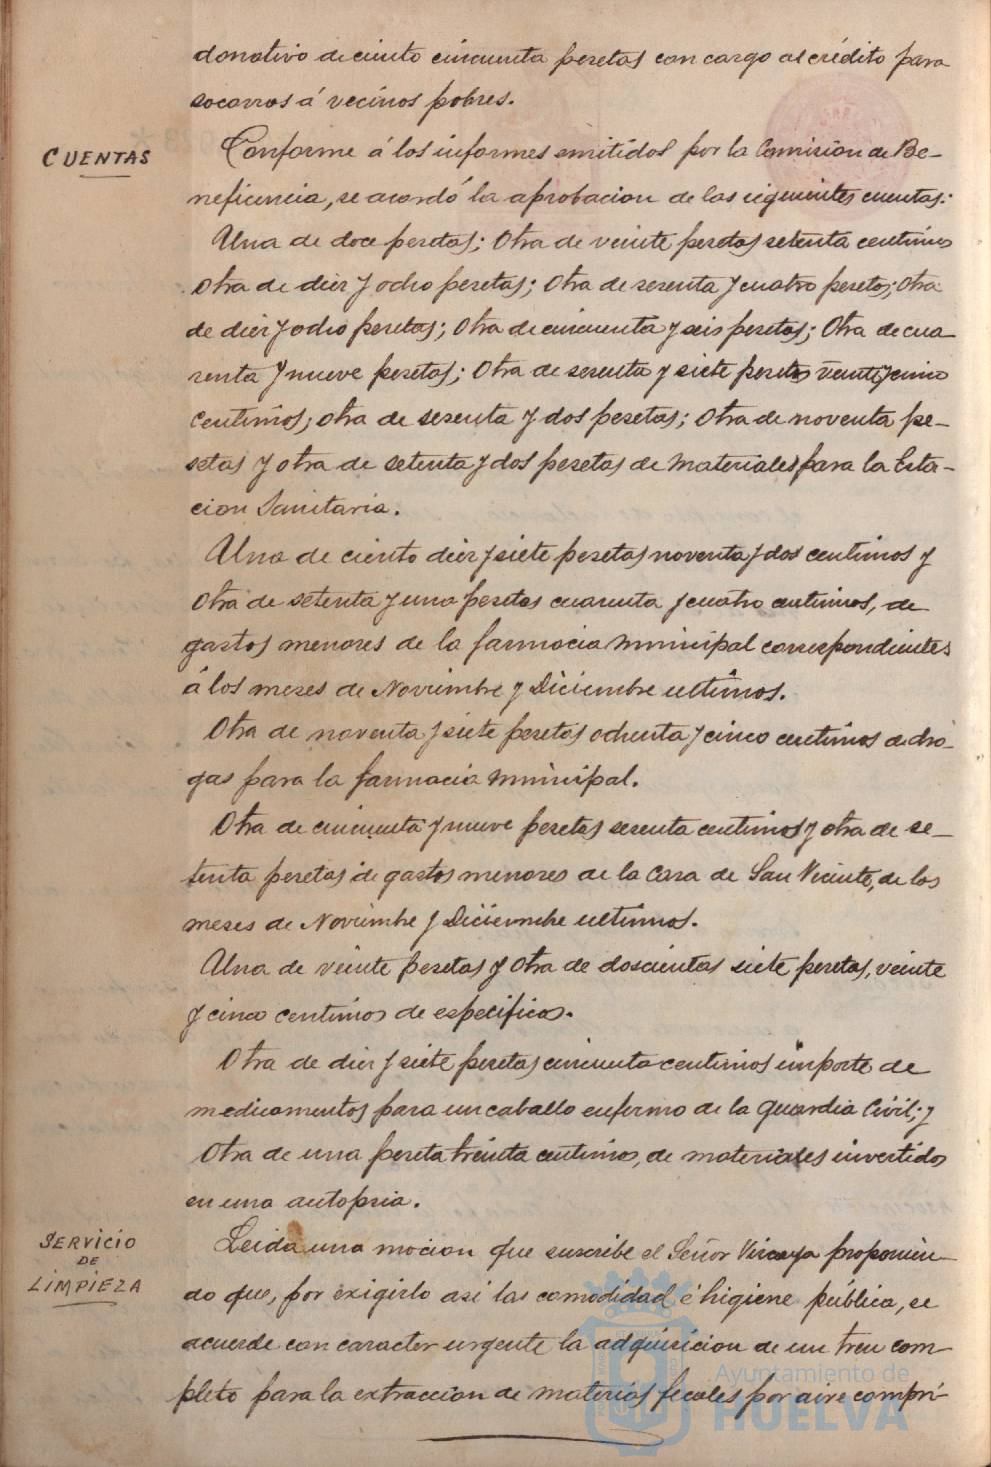 donativo de ciento cincuenta pesetas con cargo al crédito para
socorros á vecinos pobres.
CUENTAS
Conforme á los informes emitidos por la Comision de Be-
neficencia, se acordó la aprobacion de las siguientes cuentas:
Una de doce pesetas; Otra de veinte pesetas setenta centimos
Otra de diez y ocho pesetas; Otra de sesenta y cuatro pesetas; Otra
de diez y ocho pesetas; Otra de cincuenta y seis pesetas; Otra de cua
renta y nueve pesetas; Otra de sesenta y siete pesetas veinticinco
centimos; otra de sesenta y dos pesetas; Otra de noventa pe-
setas y otra de setenta y dos pesetas de materiales para la Esta-
cion Sanitaria.
Una de ciento diez y siete pesetas noventa y dos centimos y
Otra de setenta y una pesetas cuarenta y cuatro centimos, de
gastos menores de la farmacia municipal correspondientes
á los meses de Noviembre y Diciembre ultimos.
Otra de noventa y siete pesetas ochenta y cinco centimos de dro-
gas para la farmacia municipal.
Otra de cincuenta y nueve pesetas sesenta centimos y otra de se-
tenta pesetas de gastos menores de la Casa de San Vicente, de los
meses de Noviembre y Diciembre ultimos.
Una de veinte pesetas y Otra de doscientas siete pesetas, veinte
y cinco centimos de especificos.
Otra de diez y siete pesetas cincuenta centimos importe de
medicamentos para un caballo enfermo de la Guardia Civil; y
Otra de una peseta treinta centimos, de materiales invertidos
en una autopsia.
SERVICIO
DE
LIMPIEZA
Leida una mocion que suscribe el Señor Vizcaya proponien-
do que, por exigirlo asi las comodidad é higiene pública, se
acuerde con caracter urgente la adquisicion de un tren com-
pleto para la extraccion de materias fecales por aire compri-
Ayuntamiento de
HUELVA